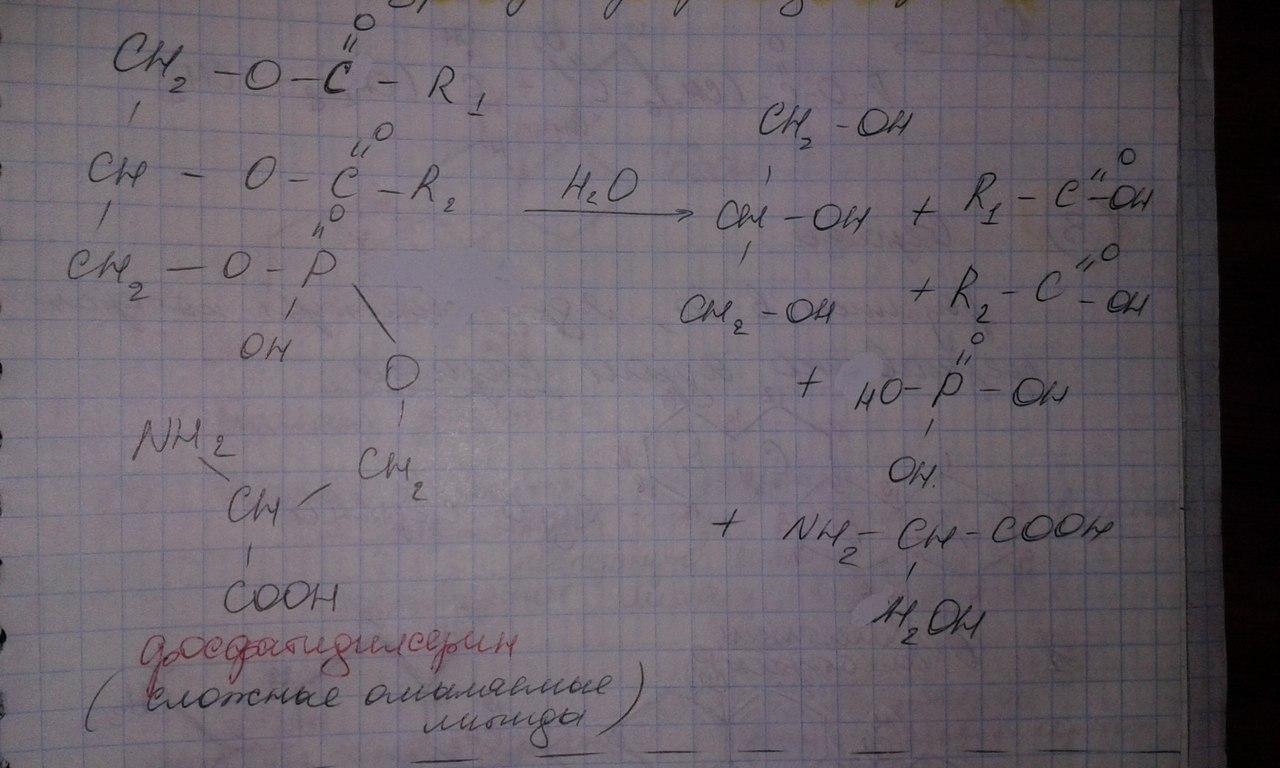 CH₂ – O – C – R₁
O
CH – O – C – R₂
O
CH₂ – O – P
O
OH
O
CH₂
NH₂
CH
COOH
H₂O
→
CH₂ – OH
CH – OH
CH₂ – OH
+ R₁ – C – OH
O
+ R₂ – C – OH
O
+ HO – P – OH
O
OH
+ NH₂ – CH – COOH
H₂OH
фосфатидилсерин
(сложные омыляемые
липиды)